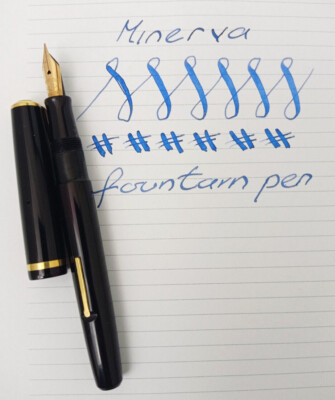 Minerva
# # # # # #
fountain pen